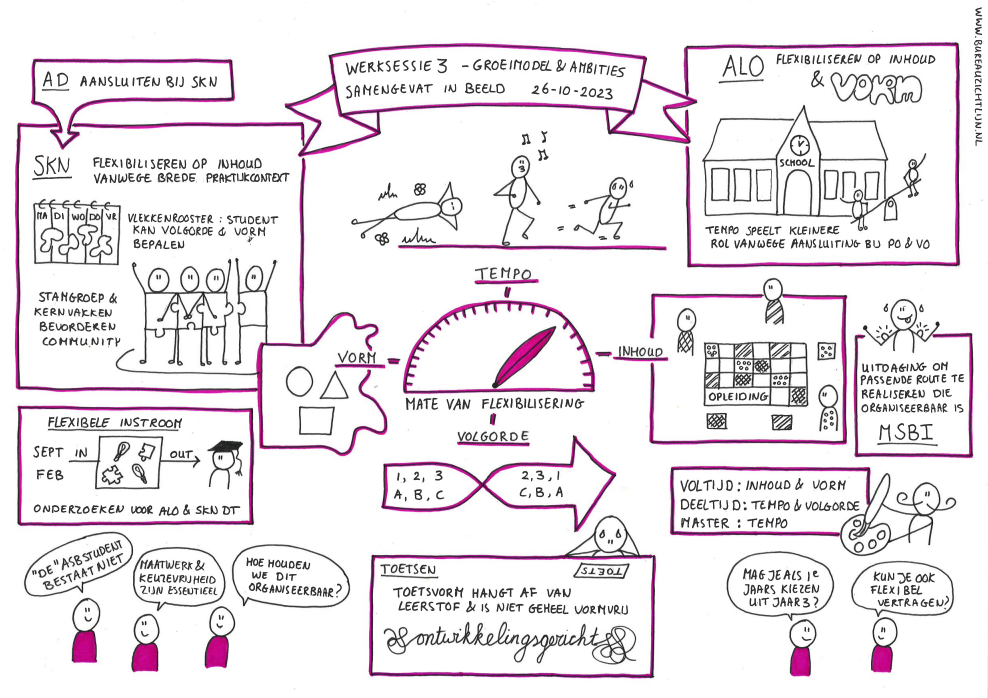 WWW.BUREAUZICHTLIJN.NL
WERKSESSIE 3 - GROEIMODEL & AMBITIES
SAMENGEVAT IN BEELD 26-10-2023
AD AANSLUITEN BIJ SKN
SKN FLEXIBILISEREN OP INHOUD
VANWEGE BREDE PRAKTIJKCONTEXT
MA DI WO DO VR
VLEKKENROOSTER : STUDENT
KAN VOLGORDE & VORM
BEPALEN
STAMGROEP &
KERNVAKKEN
BEVORDEREN
COMMUNITY
ALO FLEXIBILISEREN OP INHOUD
& VORM
SCHOOL
TEMPO SPEELT KLEINERE
ROL VANWEGE AANSLUITING BIJ PO & VO
TEMPO
VORM
INHOUD
MATE VAN FLEXIBILISERING
VOLGORDE
1, 2, 3
A, B, C
2, 3, 1
C, B, A
OPLEIDING
UITDAGING OM
PASSENDE ROUTE TE
REALISEREN DIE
ORGANISEERBAAR IS
MSBI
FLEXIBELE INSTROOM
SEPT IN OUT
FEB
ONDERZOEKEN VOOR ALO & SKN DT
VOLTIJD : INHOUD & VORM
DEELTIJD : TEMPO & VOLGORDE
MASTER : TEMPO
"DE" ASB STUDENT
BESTAAT NIET
MAATWERK &
KEUZEVRIJHEID
ZIJN ESSENTIEEL
HOE HOUDEN
WE DIT
ORGANISEERBAAR?
TOETS
TOETSEN
TOETSVORM HANGT AF VAN
LEERSTOF & IS NIET GEHEEL VORMVRIJ
ontwikkelingsgericht
MAG JE ALS 1e
JAARS KIEZEN
UIT JAAR 3?
KUN JE OOK
FLEXIBEL
VERTRAGEN?